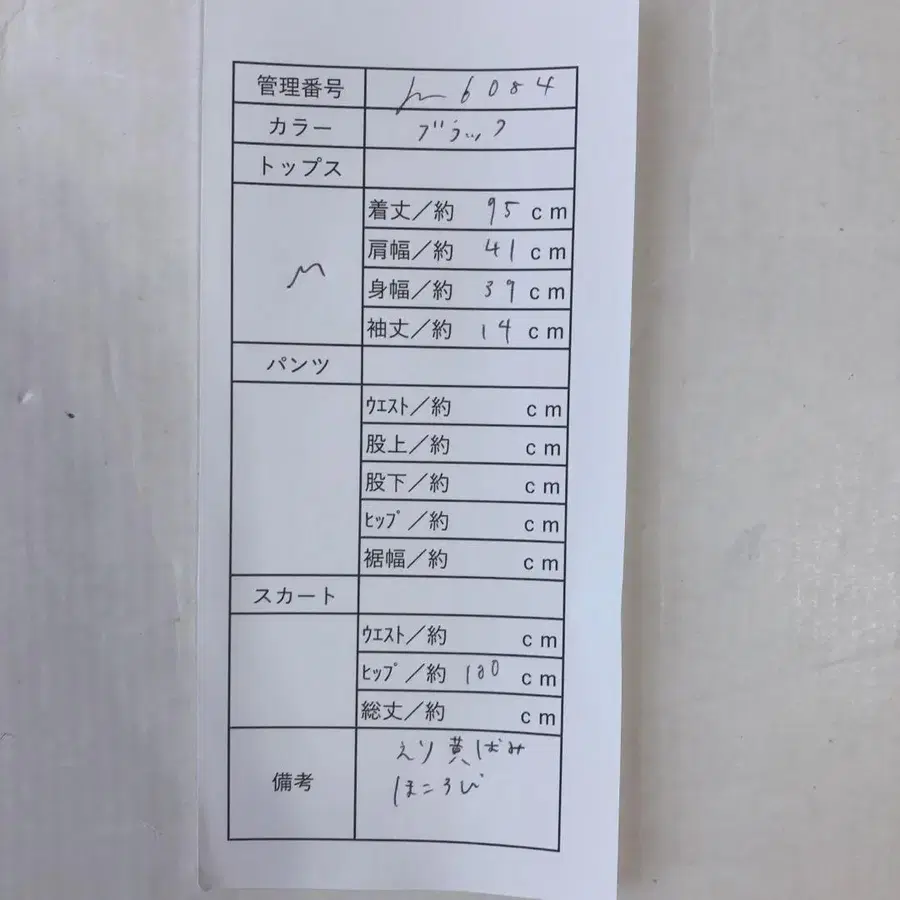 管理番号 m 6084
カラー ブラック
トップス
M
着丈／約 95 cm
肩幅／約 41 cm
身幅／約 39 cm
袖丈／約 14 cm
パンツ
ｳｴｽﾄ／約 cm
股上／約 cm
股下／約 cm
ﾋｯﾌﾟ／約 cm
裾幅／約 cm
スカート
ｳｴｽﾄ／約 cm
ﾋｯﾌﾟ／約 100 cm
総丈／約 cm
備考
えり黄ばみ
ほころび